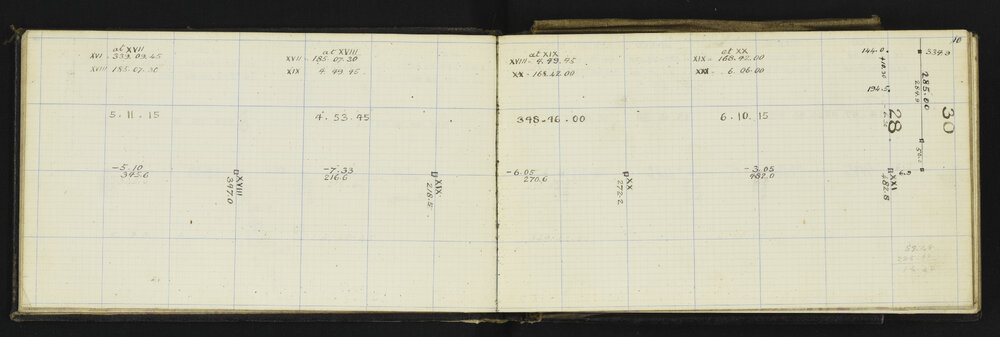 at XVII
XVI - 339.09.45
XVIII 185.07.30
5.11.15
-5.10
345.6
XVIII
347.0
at XVIII
XVII - 185.07.30
XIX 4.49.45
4.53.45
-7.33
216.6
XIX
218.5
at XIX
XVIII - 4.49.45
XX - 168.42.00
348.46.00
-6.05
270.6
XX
272.2
at XX
XIX - 168.42.00
XXI 6.06.00
6.10.15
-3.05
482.0
XXI
482.8
10
144.0
334.0
194.5
285.00
28
30
6.8